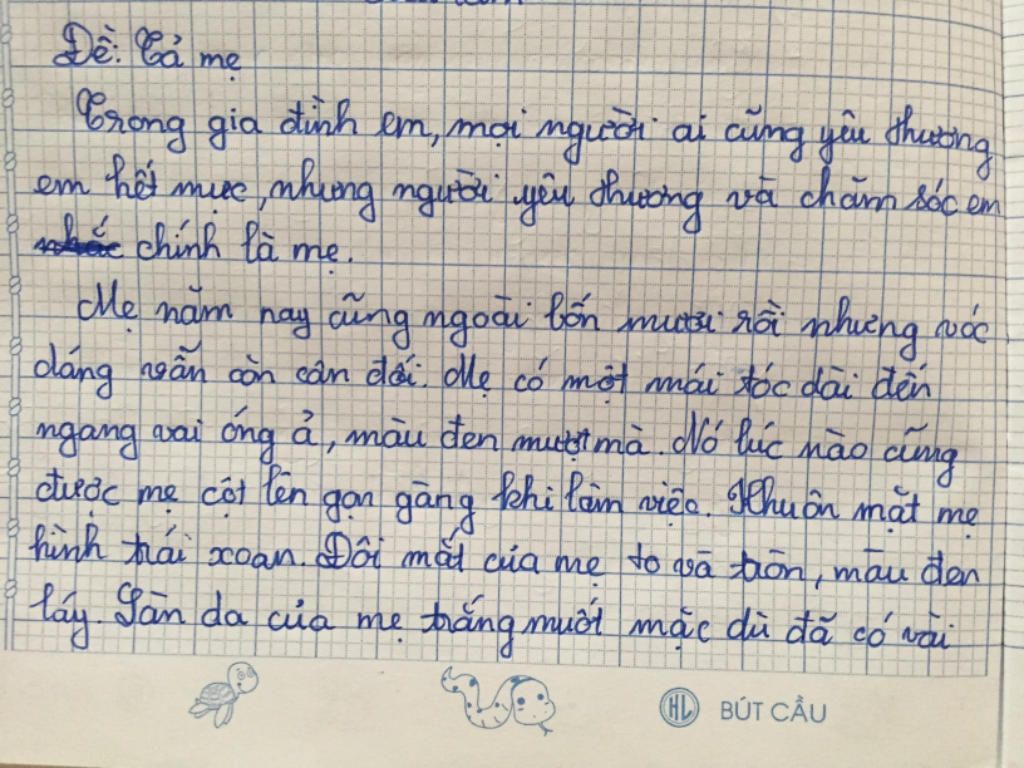 Đề: Tả mẹ
Trong gia đình em, mọi người ai cũng yêu thương
em hết mực, nhưng người yêu thương và chăm sóc em
chính là mẹ.
Mẹ năm nay cũng ngoài bốn mươi rồi nhưng vóc
dáng vẫn còn cân đối. Mẹ có một mái tóc dài đến
ngang vai óng ả, màu đen mượt mà. Nó lúc nào cũng
được mẹ cột lên gọn gàng khi làm việc. Khuôn mặt mẹ
hình trái xoan. Đôi mắt của mẹ to và tròn, màu đen
láy. Làn da của mẹ trắng muốt mặc dù đã có vài
HL BÚT CẦU